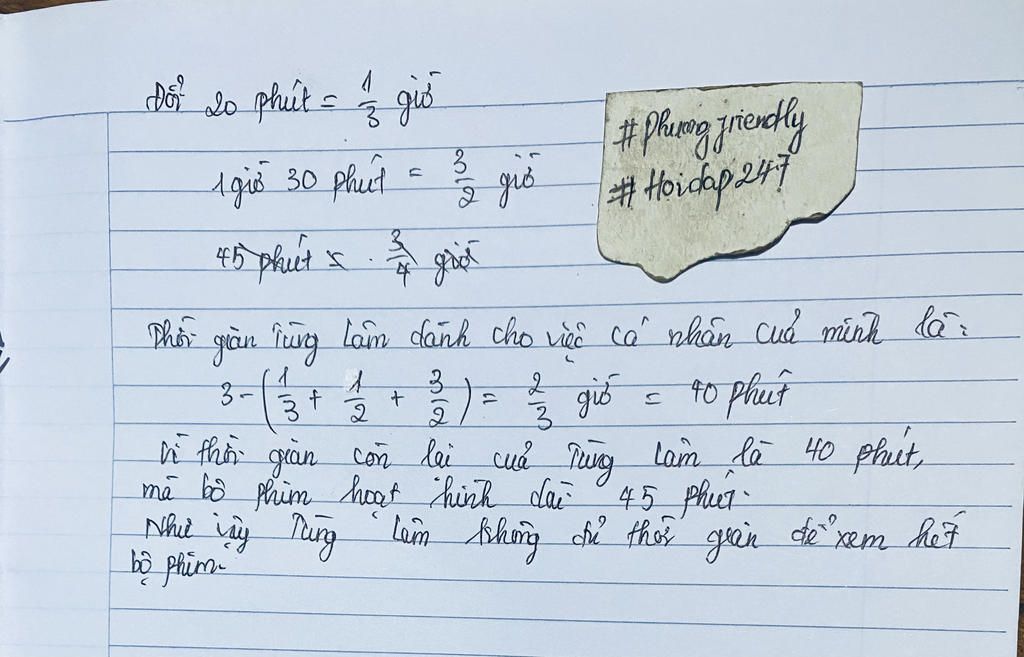 Đổi 20 phút = 1/3 giờ
1 giờ 30 phút = 3/2 giờ
45 phút = 3/4 giờ
Thời gian Tùng Lâm dành cho việc cá nhân của mình là:
3 - (1/3 + 1/2 + 3/2) = 2/3 giờ = 40 phút
Vì thời gian còn lại của Tùng Lâm là 40 phút,
mà bộ phim hoạt hình dài 45 phút.
Như vậy Tùng Lâm không đủ thời gian để xem hết
bộ phim.
#Phuongfriendly
#Hoidap247